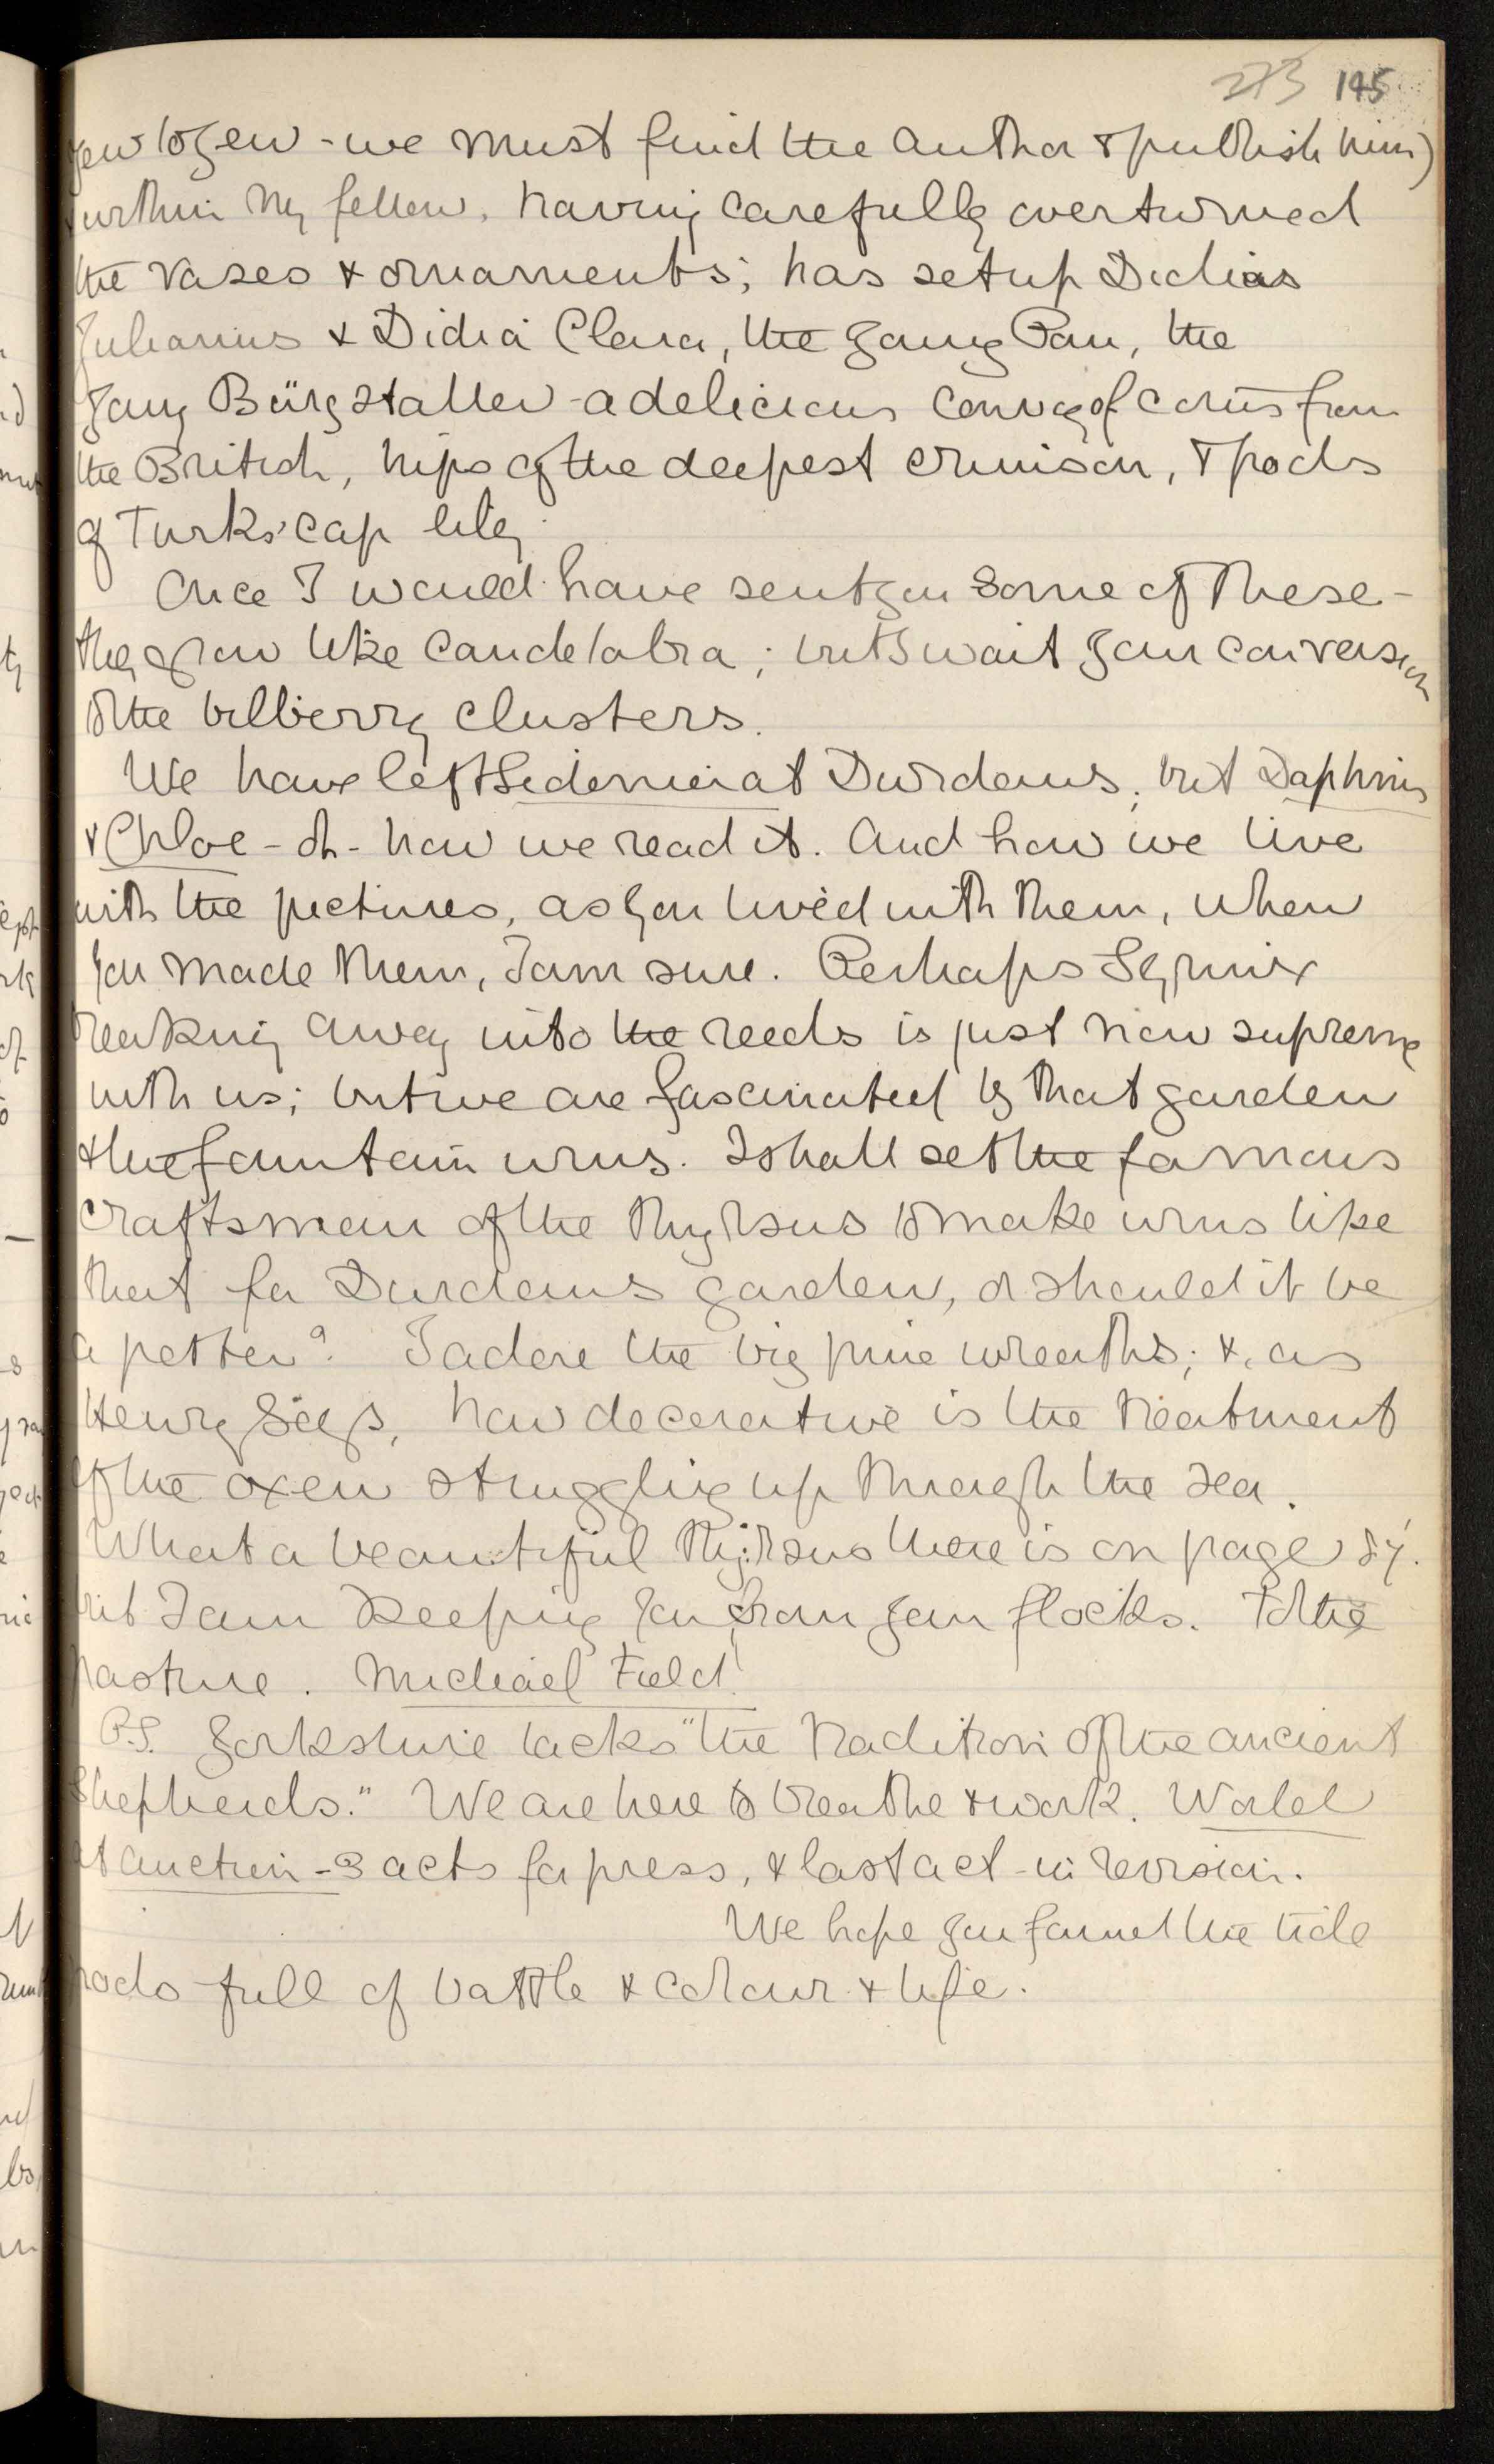 273 195
few to few - we must find the author & publish him)
within my fellow, having carefully overturned
the vases & ornaments; has set up Didias
Julianus & Didia Clara, the young Pan, the
young Bürgstaller - a delicious convoy of coins from
the British, hips of the deepest crimson, & pods
of Turks' cap lily.
Once I would have sent you some of these -
they grow like candelabra; but I wait your conversion
to the bilberry clusters.
We have left at Durdans; but Daphnis
& Chloe - oh - how we read it. And how we live
with the pictures, as you lived with them, when
you made them, I am sure. Perhaps Syrinx
breaking away into the reeds is just now supreme
with us; but we are fascinated by that garden
& the fountain urns. I shall set the famous
craftsman of the Thyrsus to make urns like
that for Durdans garden, or should it be
a potter? I adore the big pine wreaths; &, as
Henry says, how decorative is the treatment
of the oxen struggling up through the sea.
What a beautiful thyrsus there is on page 87.
but I am keeping you from your flocks. To the
pasture. Michael Field!
P.S. Yorkshire lacks "the tradition of the ancient
shepherds." We are here to breathe & work. World
at Auction - 3 acts for press, & last act in revision.
We hope you found the tide
pods full of battle & colour & life.